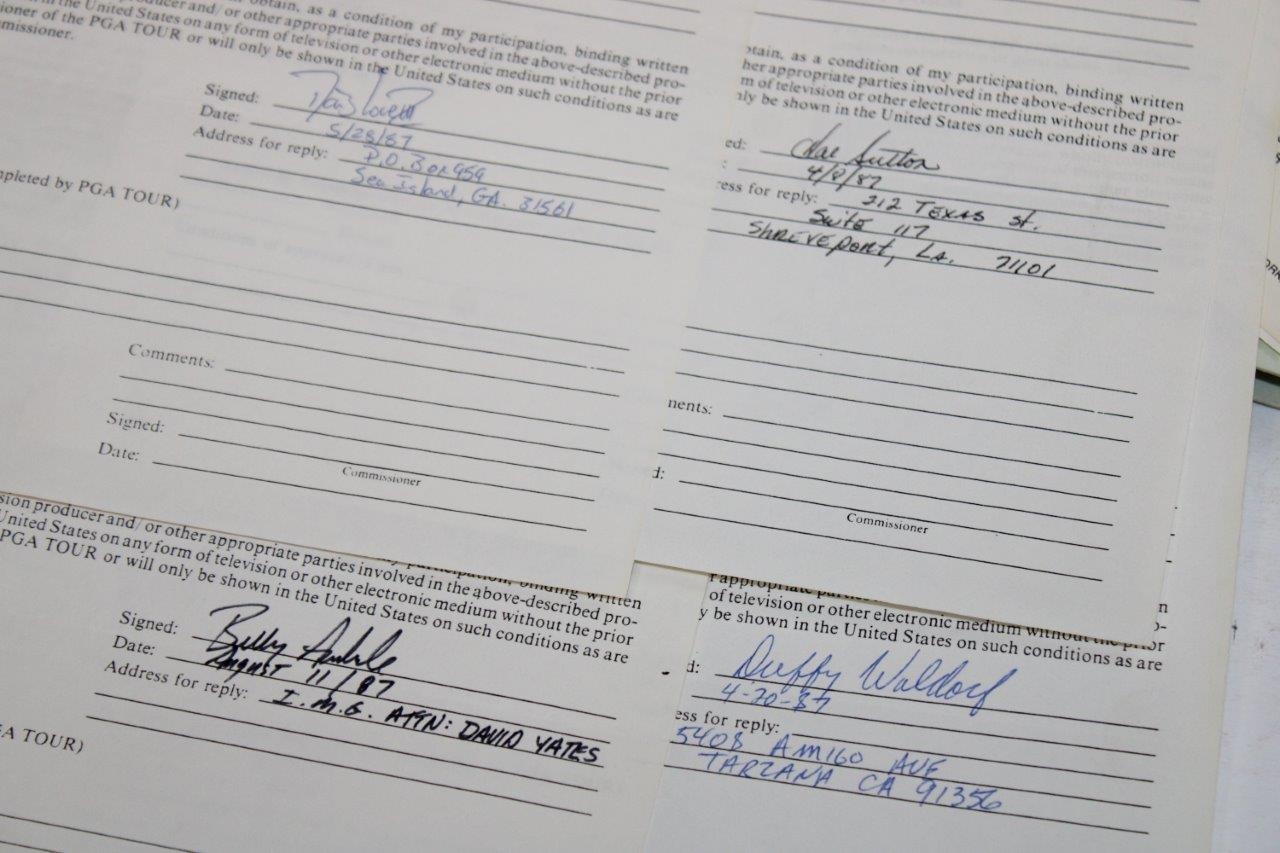 obtain, as a condition of my participation, binding written
producer and/or other appropriate parties involved in the above-described pro-
in the United States on any form of television or other electronic medium without the prior
sioner of the PGA TOUR or will only be shown in the United States on such conditions as are
mmissioner.
Signed:
Date: 5/28/87
Address for reply: P.O. Box 959
Sea Island, GA. 31561
mpleted by PGA TOUR)
Comments:
Signed:
Commissioner
Date:
btain, as a condition of my participation, binding written
her appropriate parties involved in the above-described pro-
m of television or other electronic medium without the prior
nly be shown in the United States on such conditions as are
ed: Hal Sutton
: 4/8/87
ress for reply: 212 TEXAS St.
Suite 117
SHREVEPORT, LA. 71101
ments:
d:
Commissioner
participation, binding written
sion producer and/or other appropriate parties involved in the above-described pro-
United States on any form of television or other electronic medium without the prior
PGA TOUR or will only be shown in the United States on such conditions as are
Signed: Billy Andrade
Date: August 11/87
Address for reply: I.M.G. ATTN: DAVID YATES
GA TOUR)
r appropriate parties
of television or other electronic medium without the prior
y be shown in the United States on such conditions as are
d: Duffy Waldorf
4-20-87
ess for reply:
5408 AMIGO AVE
TARZANA CA 91356